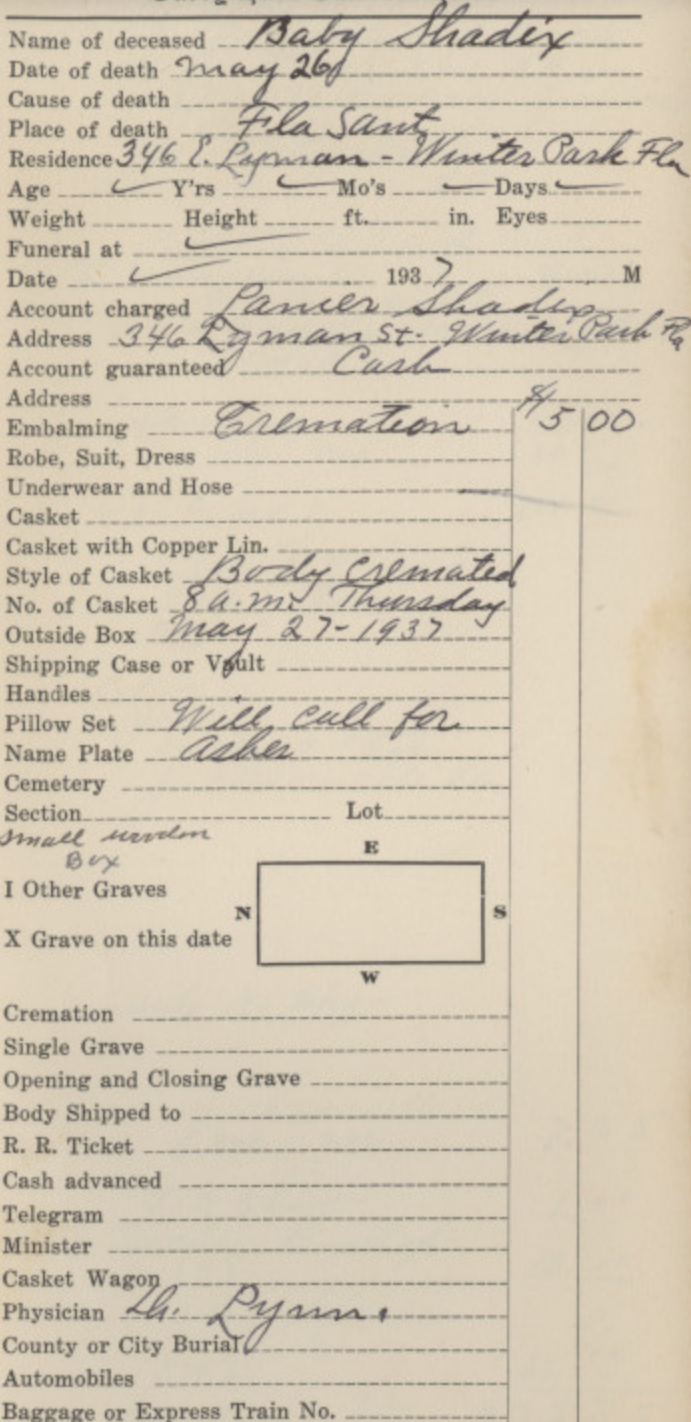 Name of deceased Baby Shadix
Date of death May 26
Cause of death
Place of death Fla Sant
Residence 346 E. Lyman - Winter Park Fla
Age Y'rs Mo's Days
Weight Height ft. in. Eyes
Funeral at
Date 1937 M
Account charged Lanier Shadix
Address 346 Lyman St. Winter Park Fla
Account guaranteed Cash
Address
Embalming Cremation $15 00
Robe, Suit, Dress
Underwear and Hose
Casket
Casket with Copper Lin.
Style of Casket Body Cremated
No. of Casket 8 a.m. Thursday
Outside Box May 27-1937
Shipping Case or Vault
Handles
Pillow Set Will call for
Name Plate ashes
Cemetery
Section Lot
small wooden
Box
E
I Other Graves
N S
X Grave on this date
W
Cremation
Single Grave
Opening and Closing Grave
Body Shipped to
R. R. Ticket
Cash advanced
Telegram
Minister
Casket Wagon
Physician Dr. Lynn.
County or City Burial
Automobiles
Baggage or Express Train No.